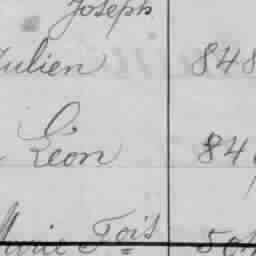 Joseph
Julien 848
Léon 84
Marie Fois